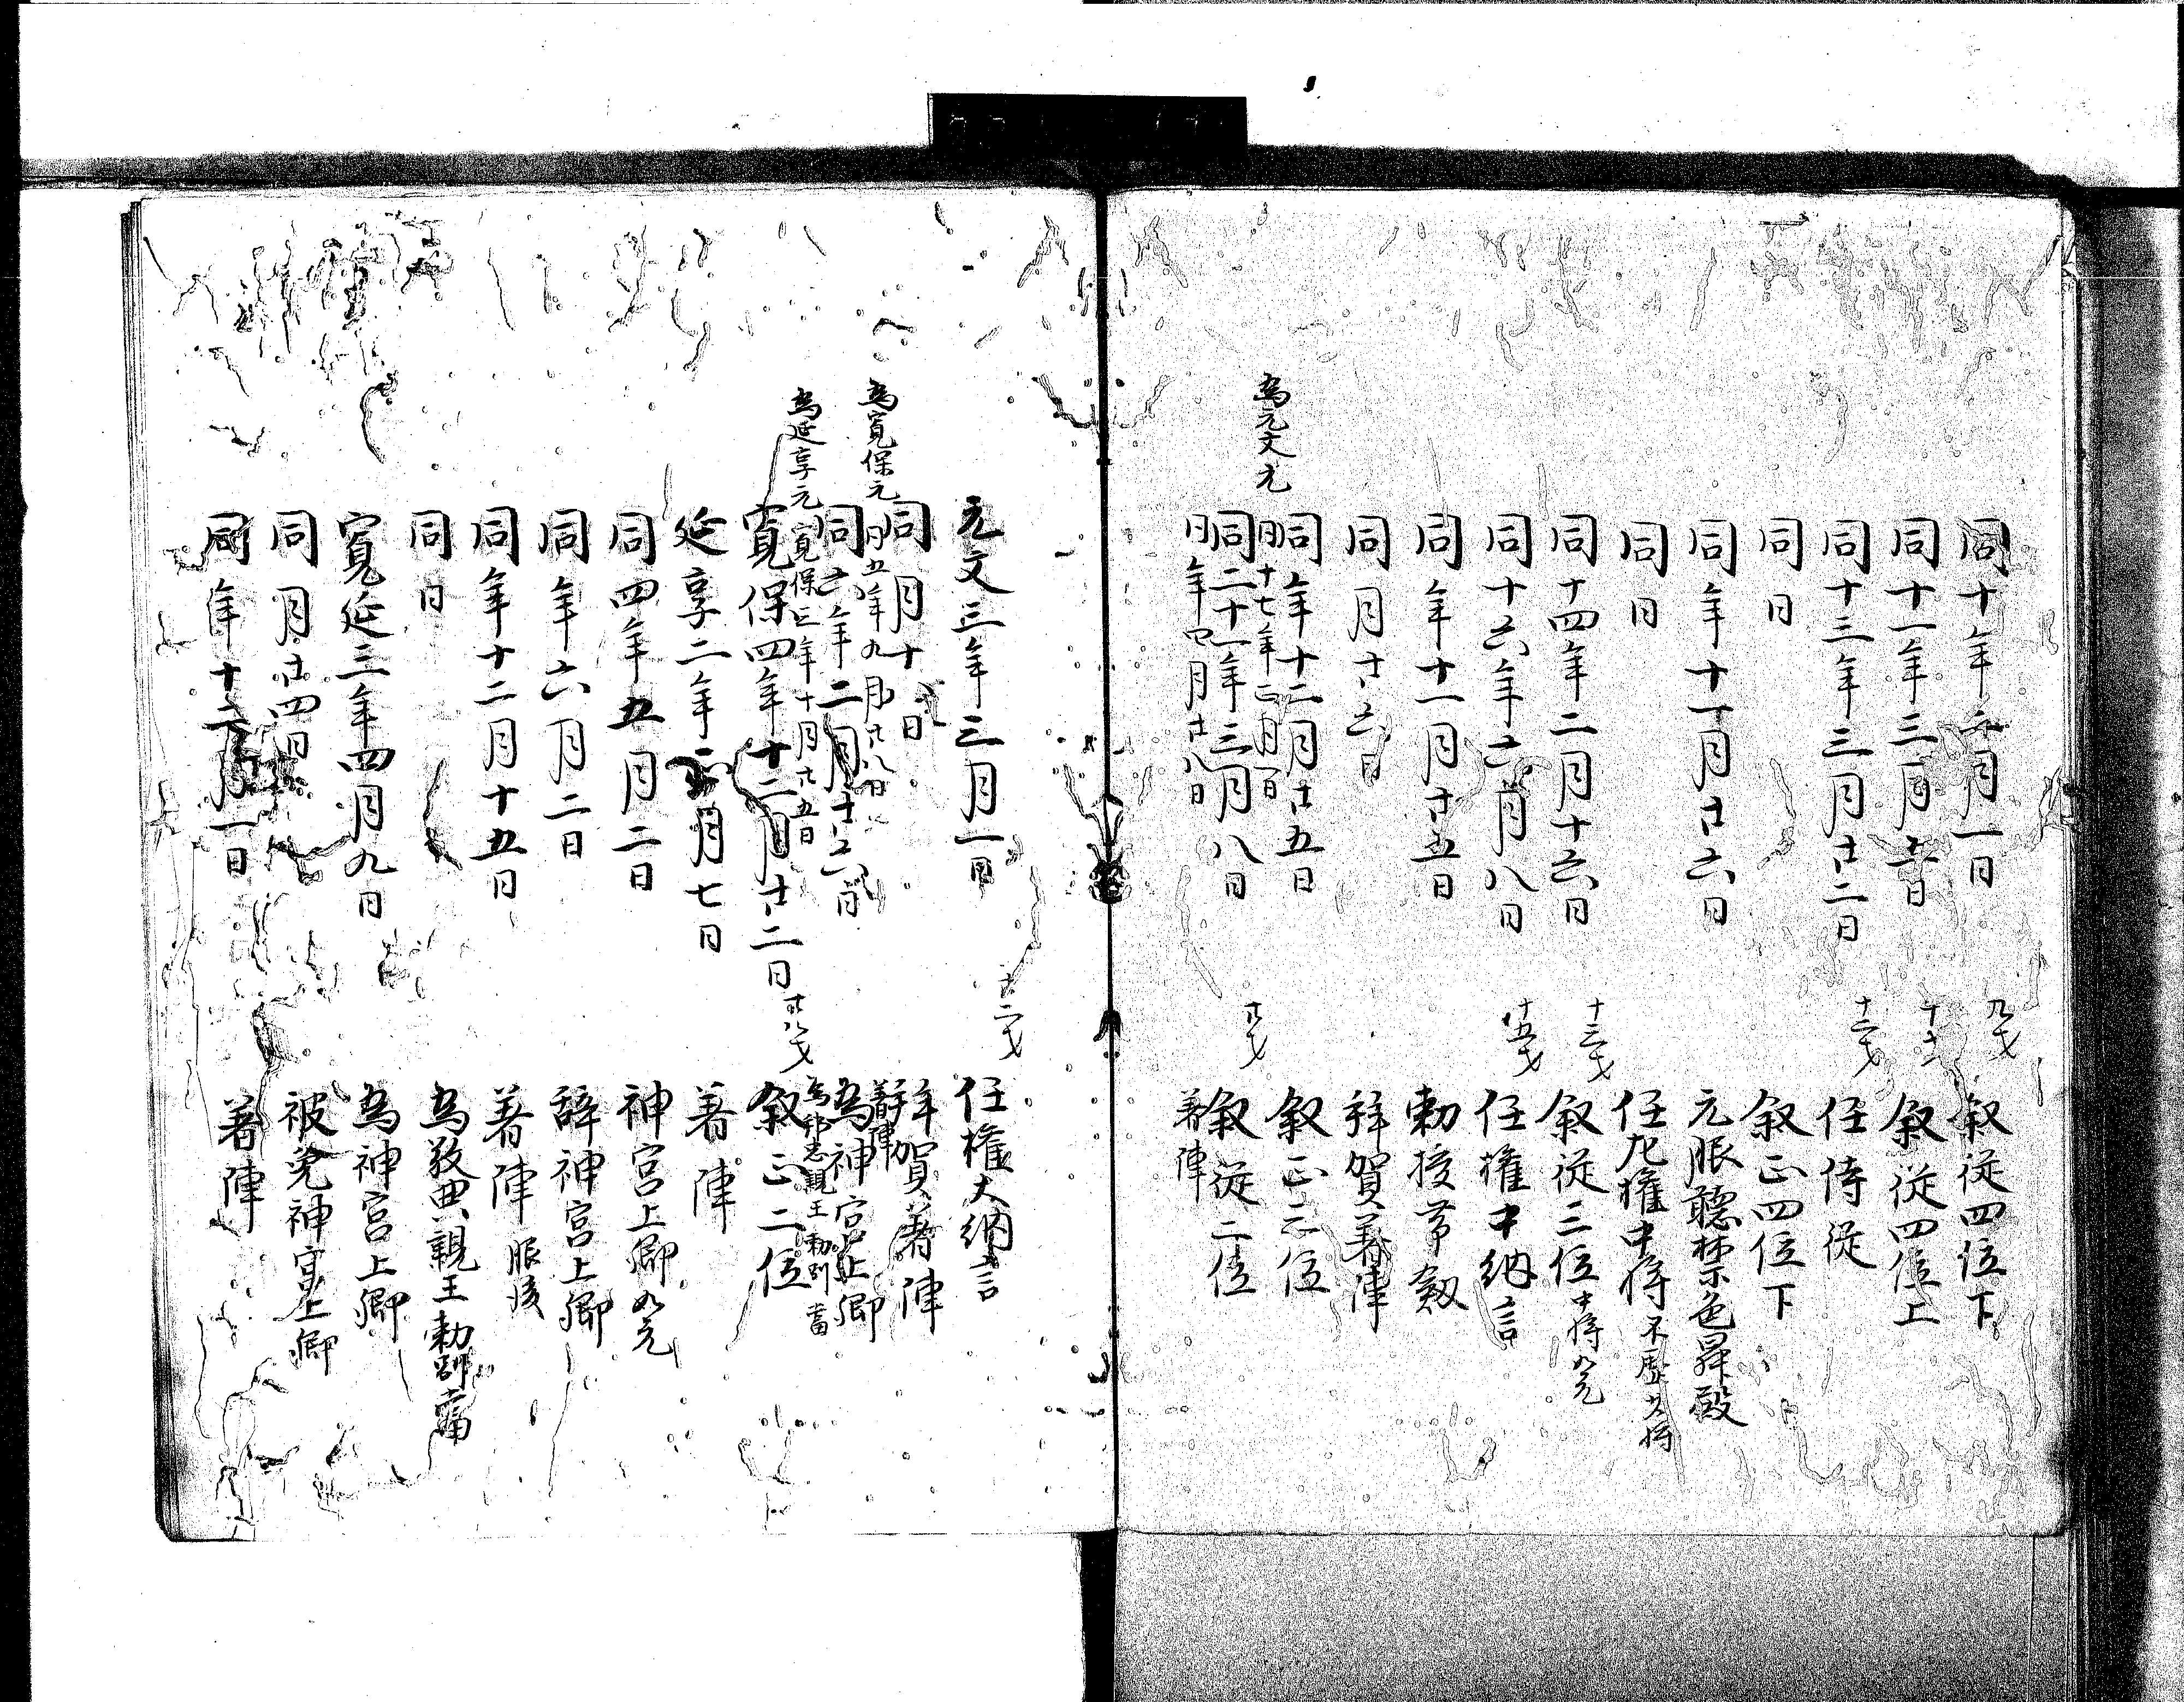 同十年六月一日 九才 叙従四位下
同十一年三月六日 十才 叙従四位上
同十三年三月廿二日 十二才 任侍従
同日 叙正四位下
同年十一月廿六日 元服聴禁色昇殿
同日 任左権中将 不歴少将
同十四年二月十六日 十三才 叙従三位 中将如元
同十六年六月八日 十五才 任権中納言
同年十一月廿五日 勅授帯剱
同月廿六日 拝賀着陣
同年十二月廿五日 叙正三位
為元文元
同廿一年三月八日 廿才 叙従二位
同年四月廿八日 着陣
元文三年三月一日 廿二才 任権大納言
同月十日 拝賀着陣
為寛保元
同五年九月廿八日 着陣
同六年二月廿六日 為神宮上卿
為延享元
寛保三年十月廿五日
寛保四年十二月廿二日 廿八才 叙正二位
延享二年正月七日 着陣
同四年五月二日 神宮上卿如元
同年六月二日 辞神宮上卿
同年十二月十五日 着陣 服後
同日 為敦典親王勅別當
寛延三年四月九日 為神宮上卿
同月廿四日 被免神宮上卿
同年十二月一日 着陣